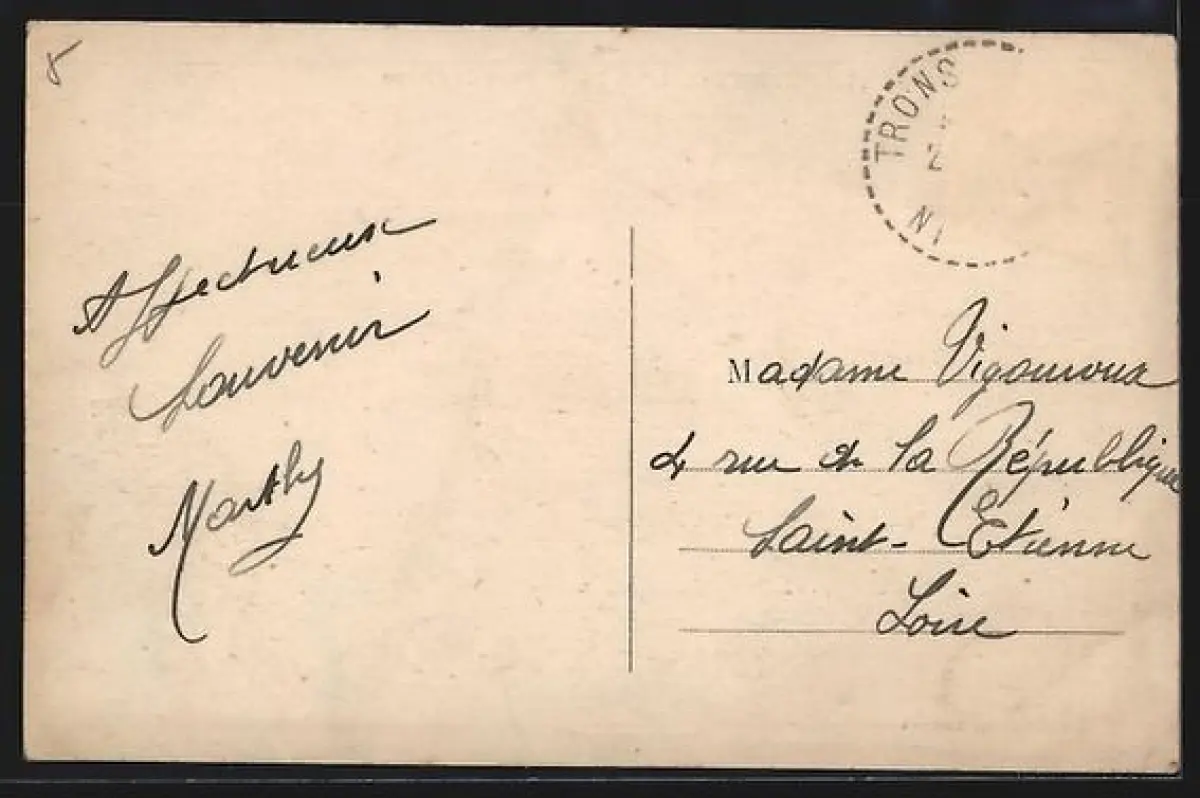 8
TRONS
2
NI
Affectueux
Souvenir
Marthy
Madame Vigouroux
4 rue de la République
Saint-Etienne
Loire